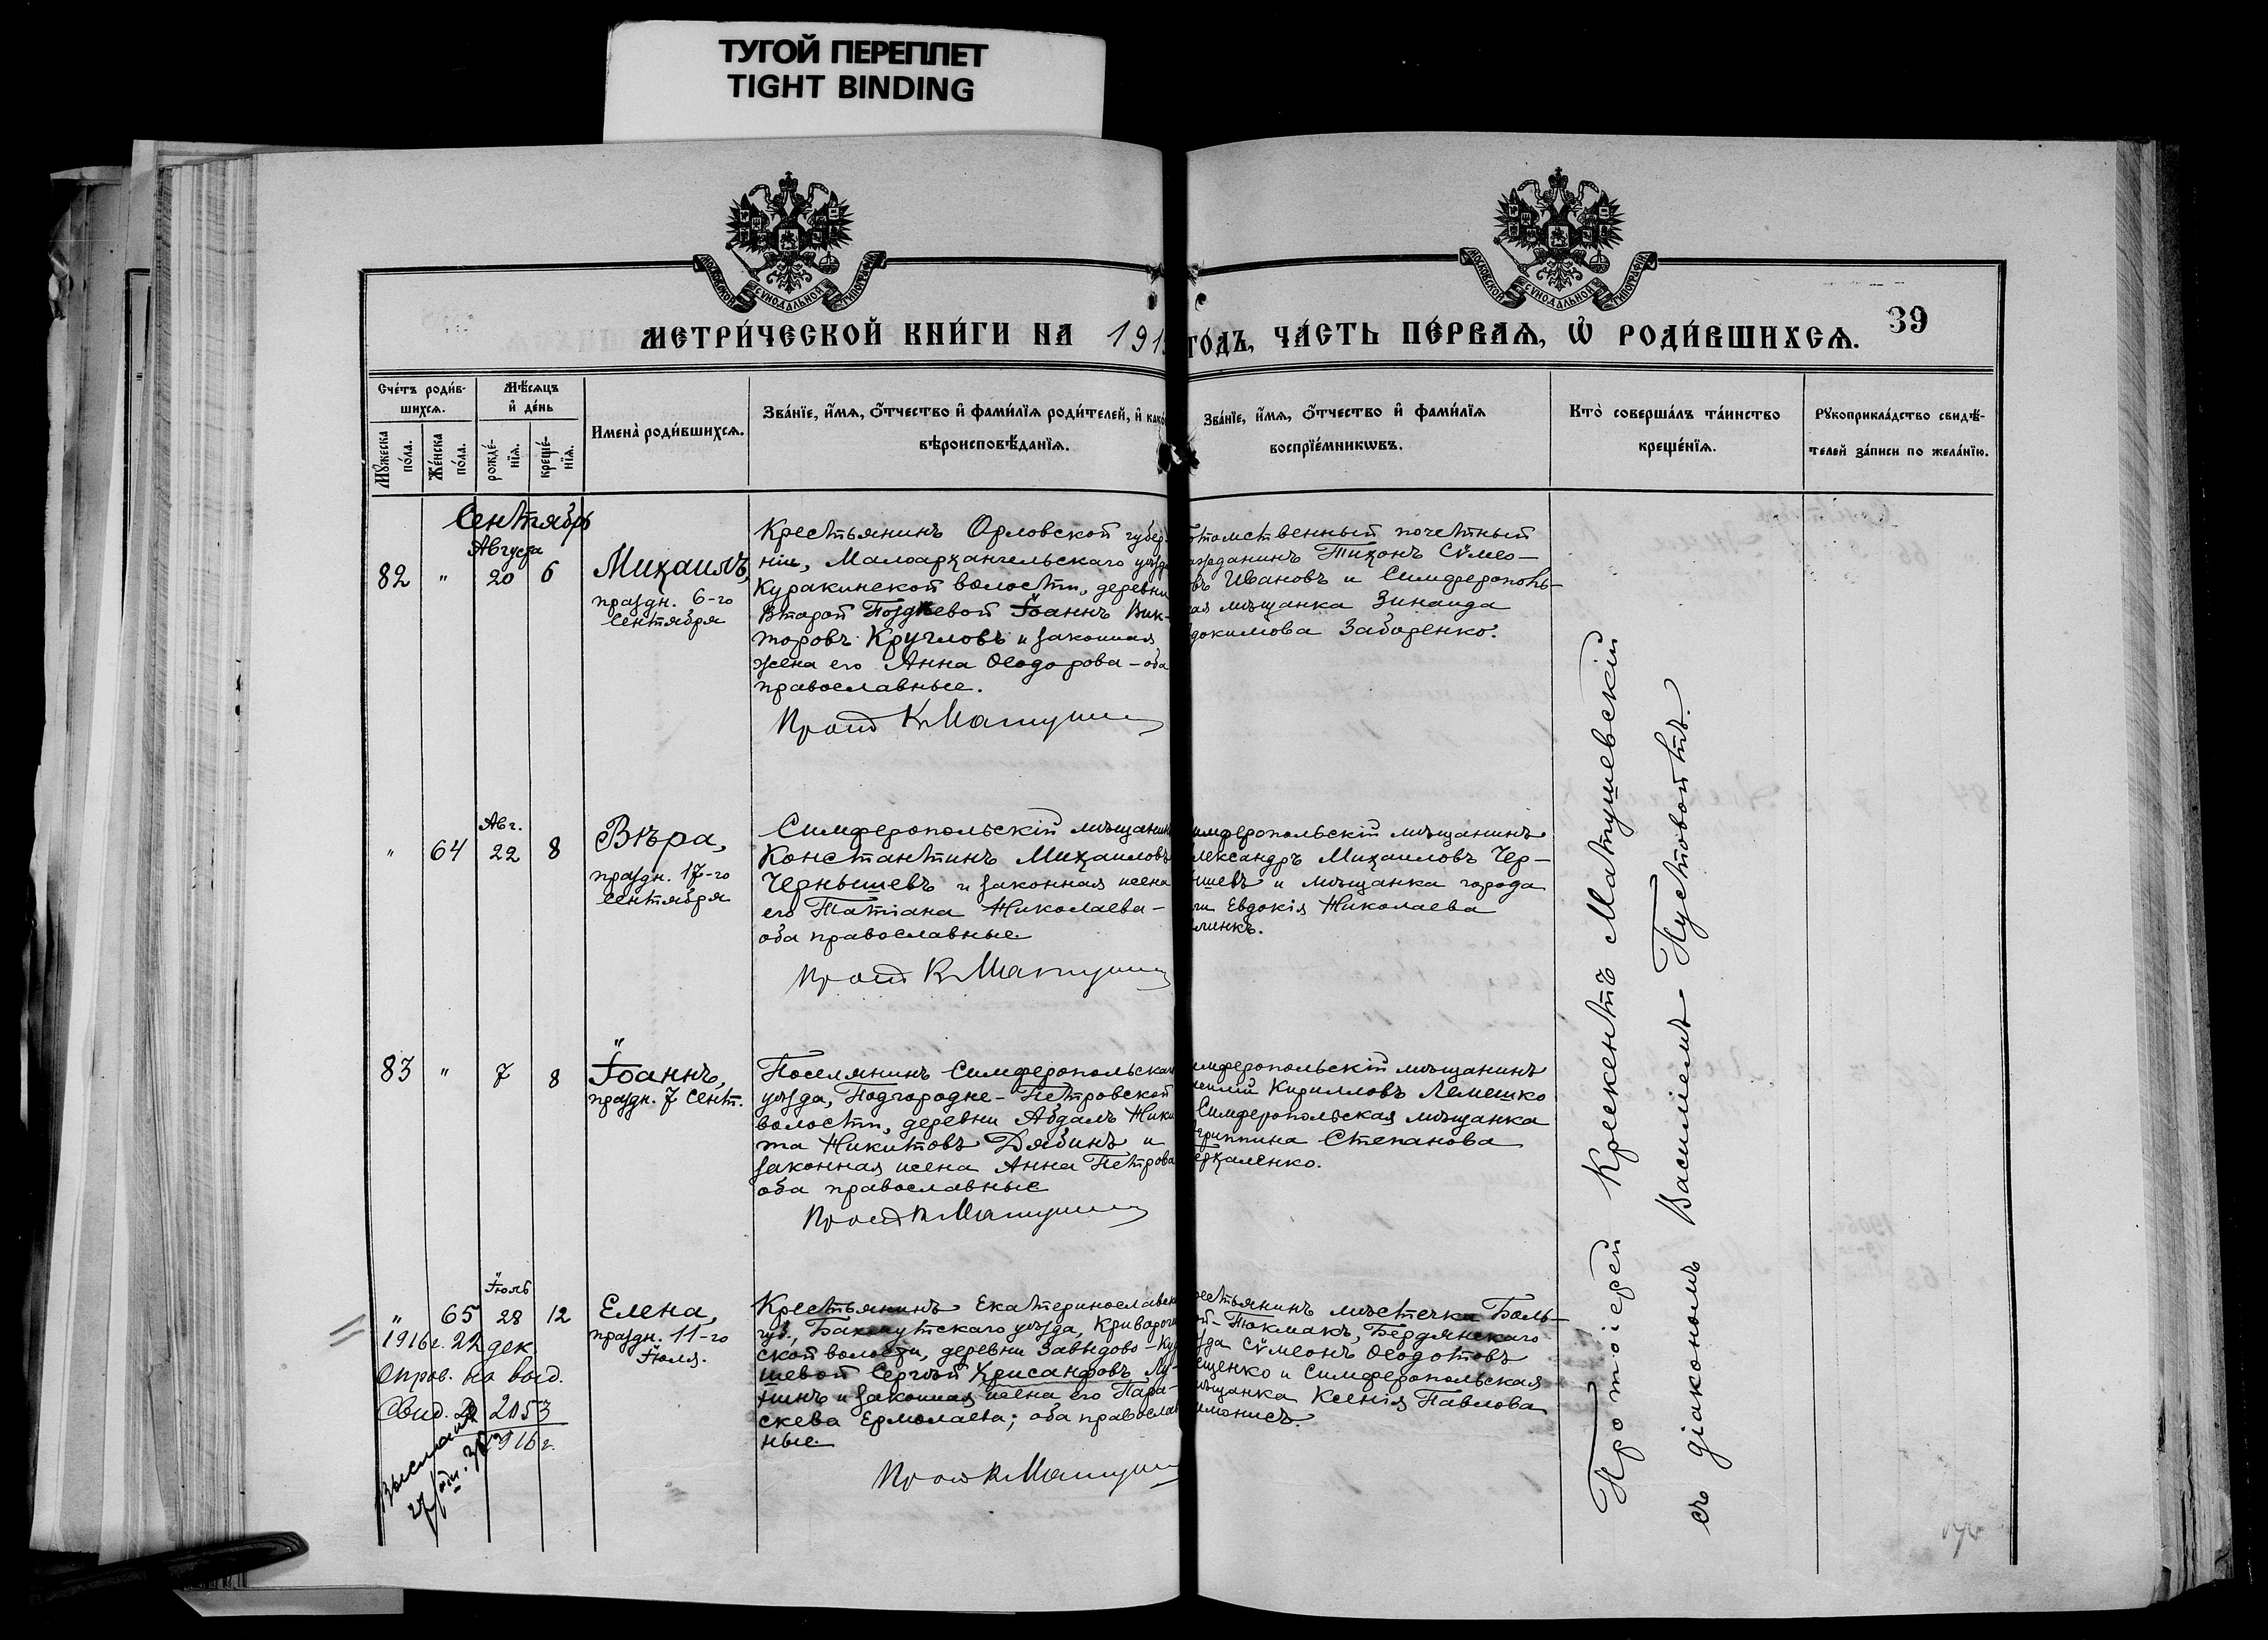 ТУГОЙ ПЕРЕПЛЕТ
TIGHT BINDING
МОСКОВСКОЙ СѴНОДАЛЬНОЙ ТИПОГРАФІИ
МОСКОВСКОЙ СѴНОДАЛЬНОЙ ТИПОГРАФІИ
39
МЕТРИ́ЧЕСКОЙ КНИ́ГИ НА 191
ГОДЪ, ЧА́СТЬ ПЕ́РВАѦ, Ѡ҆ РОДИ́ВШИХСѦ.
Сче́тъ роди́в-
шихсѧ.
Мꙋжеска по́ла.
Же́нска по́ла.
Мѣ́сѧцъ
и҆ де́нь
рожде́-
нїѧ.
креще́-
нїѧ.
Имена̀ роди́вшихсѧ.
Зва́нїе, и҆́мѧ, ѻ҆́тчество и҆ фами́лїѧ роди́телей, и҆ како
вѣроисповѣ́данїѧ.
Зва́нїе, и҆́мѧ, ѻ҆́тчество и҆ фами́лїѧ
воспрїе́мникѡвъ.
Кто̀ соверша́лъ та́инство
креще́нїѧ.
Рꙋкоприкла́дство свидѣ́-
телей за́писи по жела́нїю.
Сентябрь
Августа
82 " 20 6
Михаилъ,
праздн. 6-го
Сентября
Крестьянинъ Орловской губер-
ніи, Малоархангельскаго уѣзда
Куракинской волости, деревни
Второй Поздѣевой Іоаннъ Вик-
торовъ Кругловъ и законная
жена его Анна Ѳеодорова – оба
православные.
Прот К Матуш
отомственный почетный
ажданинъ Тихонъ Сѵмео-
въ Ивановъ и Симферополь-
ая мѣщанка Зинаида
докимова Забаренко.
Авг.
" 64 22 8
Вѣра,
праздн. 17-го
Сентября
Симферопольскій мѣщанинъ
Константинъ Михаиловъ
Чернышевъ и законная жена
его Татіана Николаева –
оба православные
Прот К Матуш
имферопольскій мѣщанинъ
лександръ Михаиловъ Чер-
ышевъ и мѣщанка города
Евдокія Николаева
линкъ.
83 " 7 8
Іоаннъ,
праздн. 7 Сент.
Поселянинъ Симферопольскаго
уѣзда, Подгородне-Петровской
волости, деревни Абдалъ Ники
та Никитовъ Дябинъ и
законная жена Анна Петрова
оба православные
Прот К Матуш
имферопольскій мѣщанинъ
Кирилловъ Лемешко
Симферопольская мѣщанка
гриппина Степанова
ерхаленко.
Іюль
" 65 28 12
Елена,
праздн. 11-го
Іюля.
1916 г. 22 дек.
Опров. на выд.
Свид. 2053
1916 г.
Крестьянинъ Екатеринославск
губ., Бахмутскаго уѣзда, Криворож
ской волости, деревни Завидово-Ку
шевой Сергѣй Хрисанфовъ Лу-
хинъ и законная жена его Пара-
скева Ермолаева; оба православ
ные.
Прот К Матуш
рестьянинъ мѣстечка Боль-
ой-Токмакъ, Бердянскаго
ѣзда Сѵмеонъ Ѳеодотовъ
ещенко и Симферопольская
мѣщанка Ксенія Павлова
Протоіерей Крескентъ Матушевскій
съ діакономъ Василіемъ Пустовойтъ.